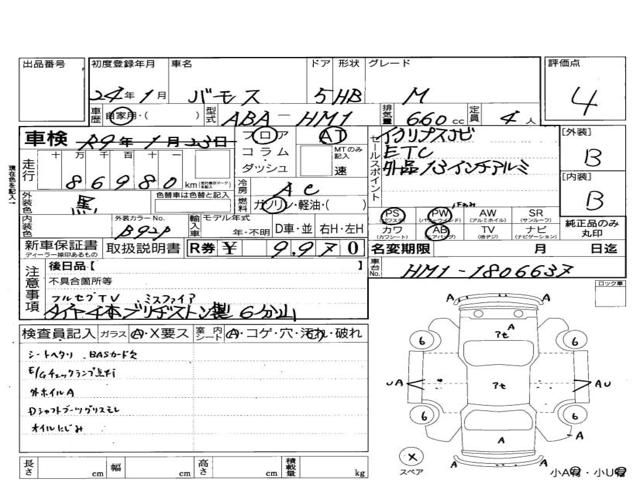 出品番号 初度登録年月 車名 ドア 形状 グレード 評価点
24年1月 バモス 5 HB M 4
車歴 自家用・( ) 型式 ABA-HM1 排気量 660cc 定員 4人
車検 R9年1月23日 フロア AT イクリプスナビ [外装]
走行 十万 万 千 百 十 一 コラム MTのみ記入 セールスポイント ETC B
86980km ダッシュ 速 外品13インチアルミ
外装色 黒 色替車は色替色( ) 冷房 AC [内装]
燃料 ガソリン・軽油・( ) B
内装色 外装カラーNo. B92P 輸入車 モデル年式 年・不明 D車・並 右H・左H
PS (パワーステアリング) PW (パワーウィンドウ) AW (アルミホイル) SR (サンルーフ)
カワ (カワシート) AB (エアバッグ) TV (地デジ) ナビ (ナビゲーション) 純正品のみ丸印
新車保証書 ディーラー捺印あるもの 取扱説明書 R券 ¥ 9,970 名変期限 月 日迄
現在色を記入
注意事項 後日品【 】 車台No. HM1-1806637
不具合箇所等 ロック車
フルセグTV ミスファイア
タイヤ4本ブリヂストン製 6分山
検査員記入 ガラス A・X要ス 室内シート A・コゲ・穴・汚れ・破れ
シートヘタリ BASカード欠
E/Gチェックランプ点灯
外ホイルA
Dシャフトブーツグリスモレ
オイルにじみ
A
6 6
UA アセ アセ AU
6 6
A A A
X スペア
長さ cm 幅 cm 高さ cm 積載量 kg
小A
・小U